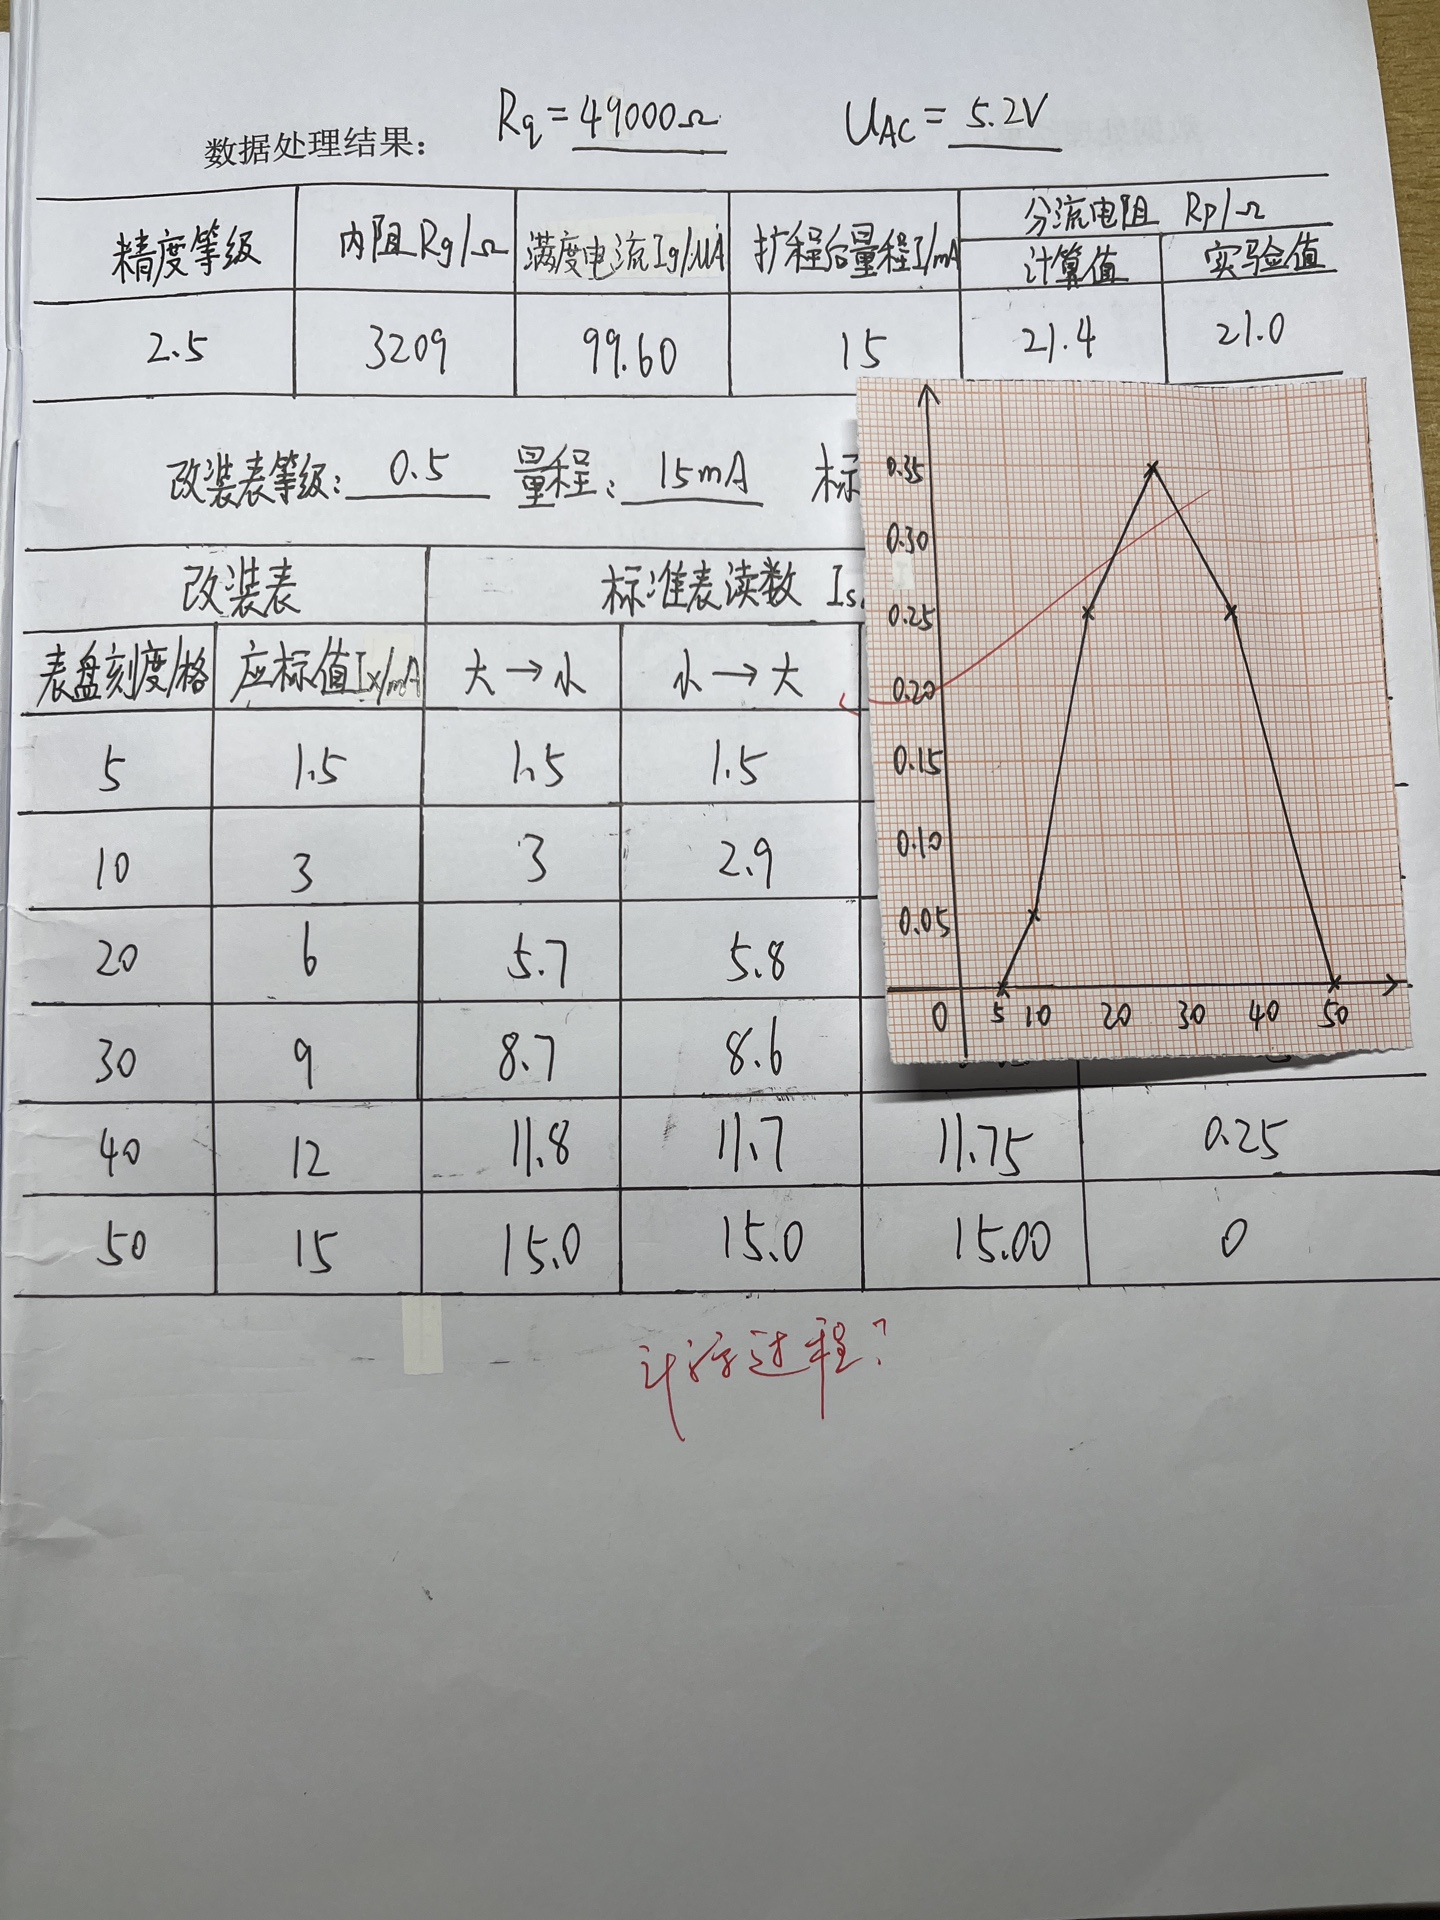 Rq = 49000Ω UAC = 5.2V
数据处理结果：
精度等级 内阻Rg/Ω 满度电流Ig/μA 扩程后量程I/mA 分流电阻 Rp/Ω
计算值 实验值
2.5 3209 99.60 15 21.4 21.0
改装表等级：0.5 量程：15mA 标
改装表 标准表读数 Is
表盘刻度/格 应标值Ix/mA 大→小 小→大
5 1.5 1.5 1.5
10 3 3 2.9
20 6 5.7 5.8
30 9 8.7 8.6
40 12 11.8 11.7 11.75 0.25
50 15 15.0 15.0 15.00 0
0.35
0.30
0.25
0.20
0.15
0.10
0.05
0 5 10 20 30 40 50
计算过程？